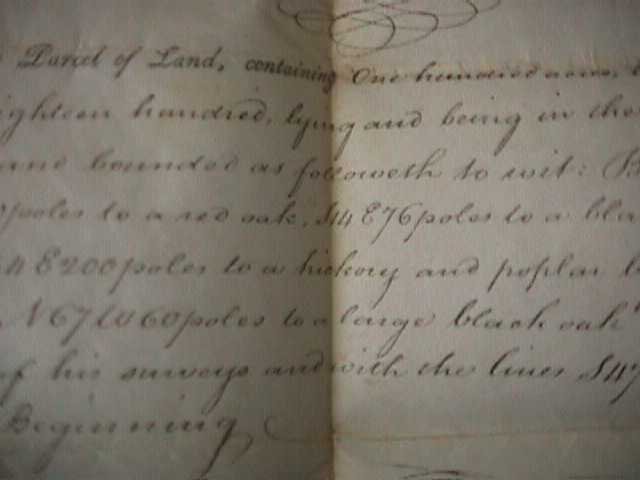 Parcel of Land, containing One hundred acres,
eighteen hundred, lying and being in the
and bounded as followeth to wit:
poles to a red oak, S14 E76 poles to a bla
4 E200 poles to a hickory and poplar
N67 W60 poles to a large black oak
of his surveys and with the lines S47
Beginning